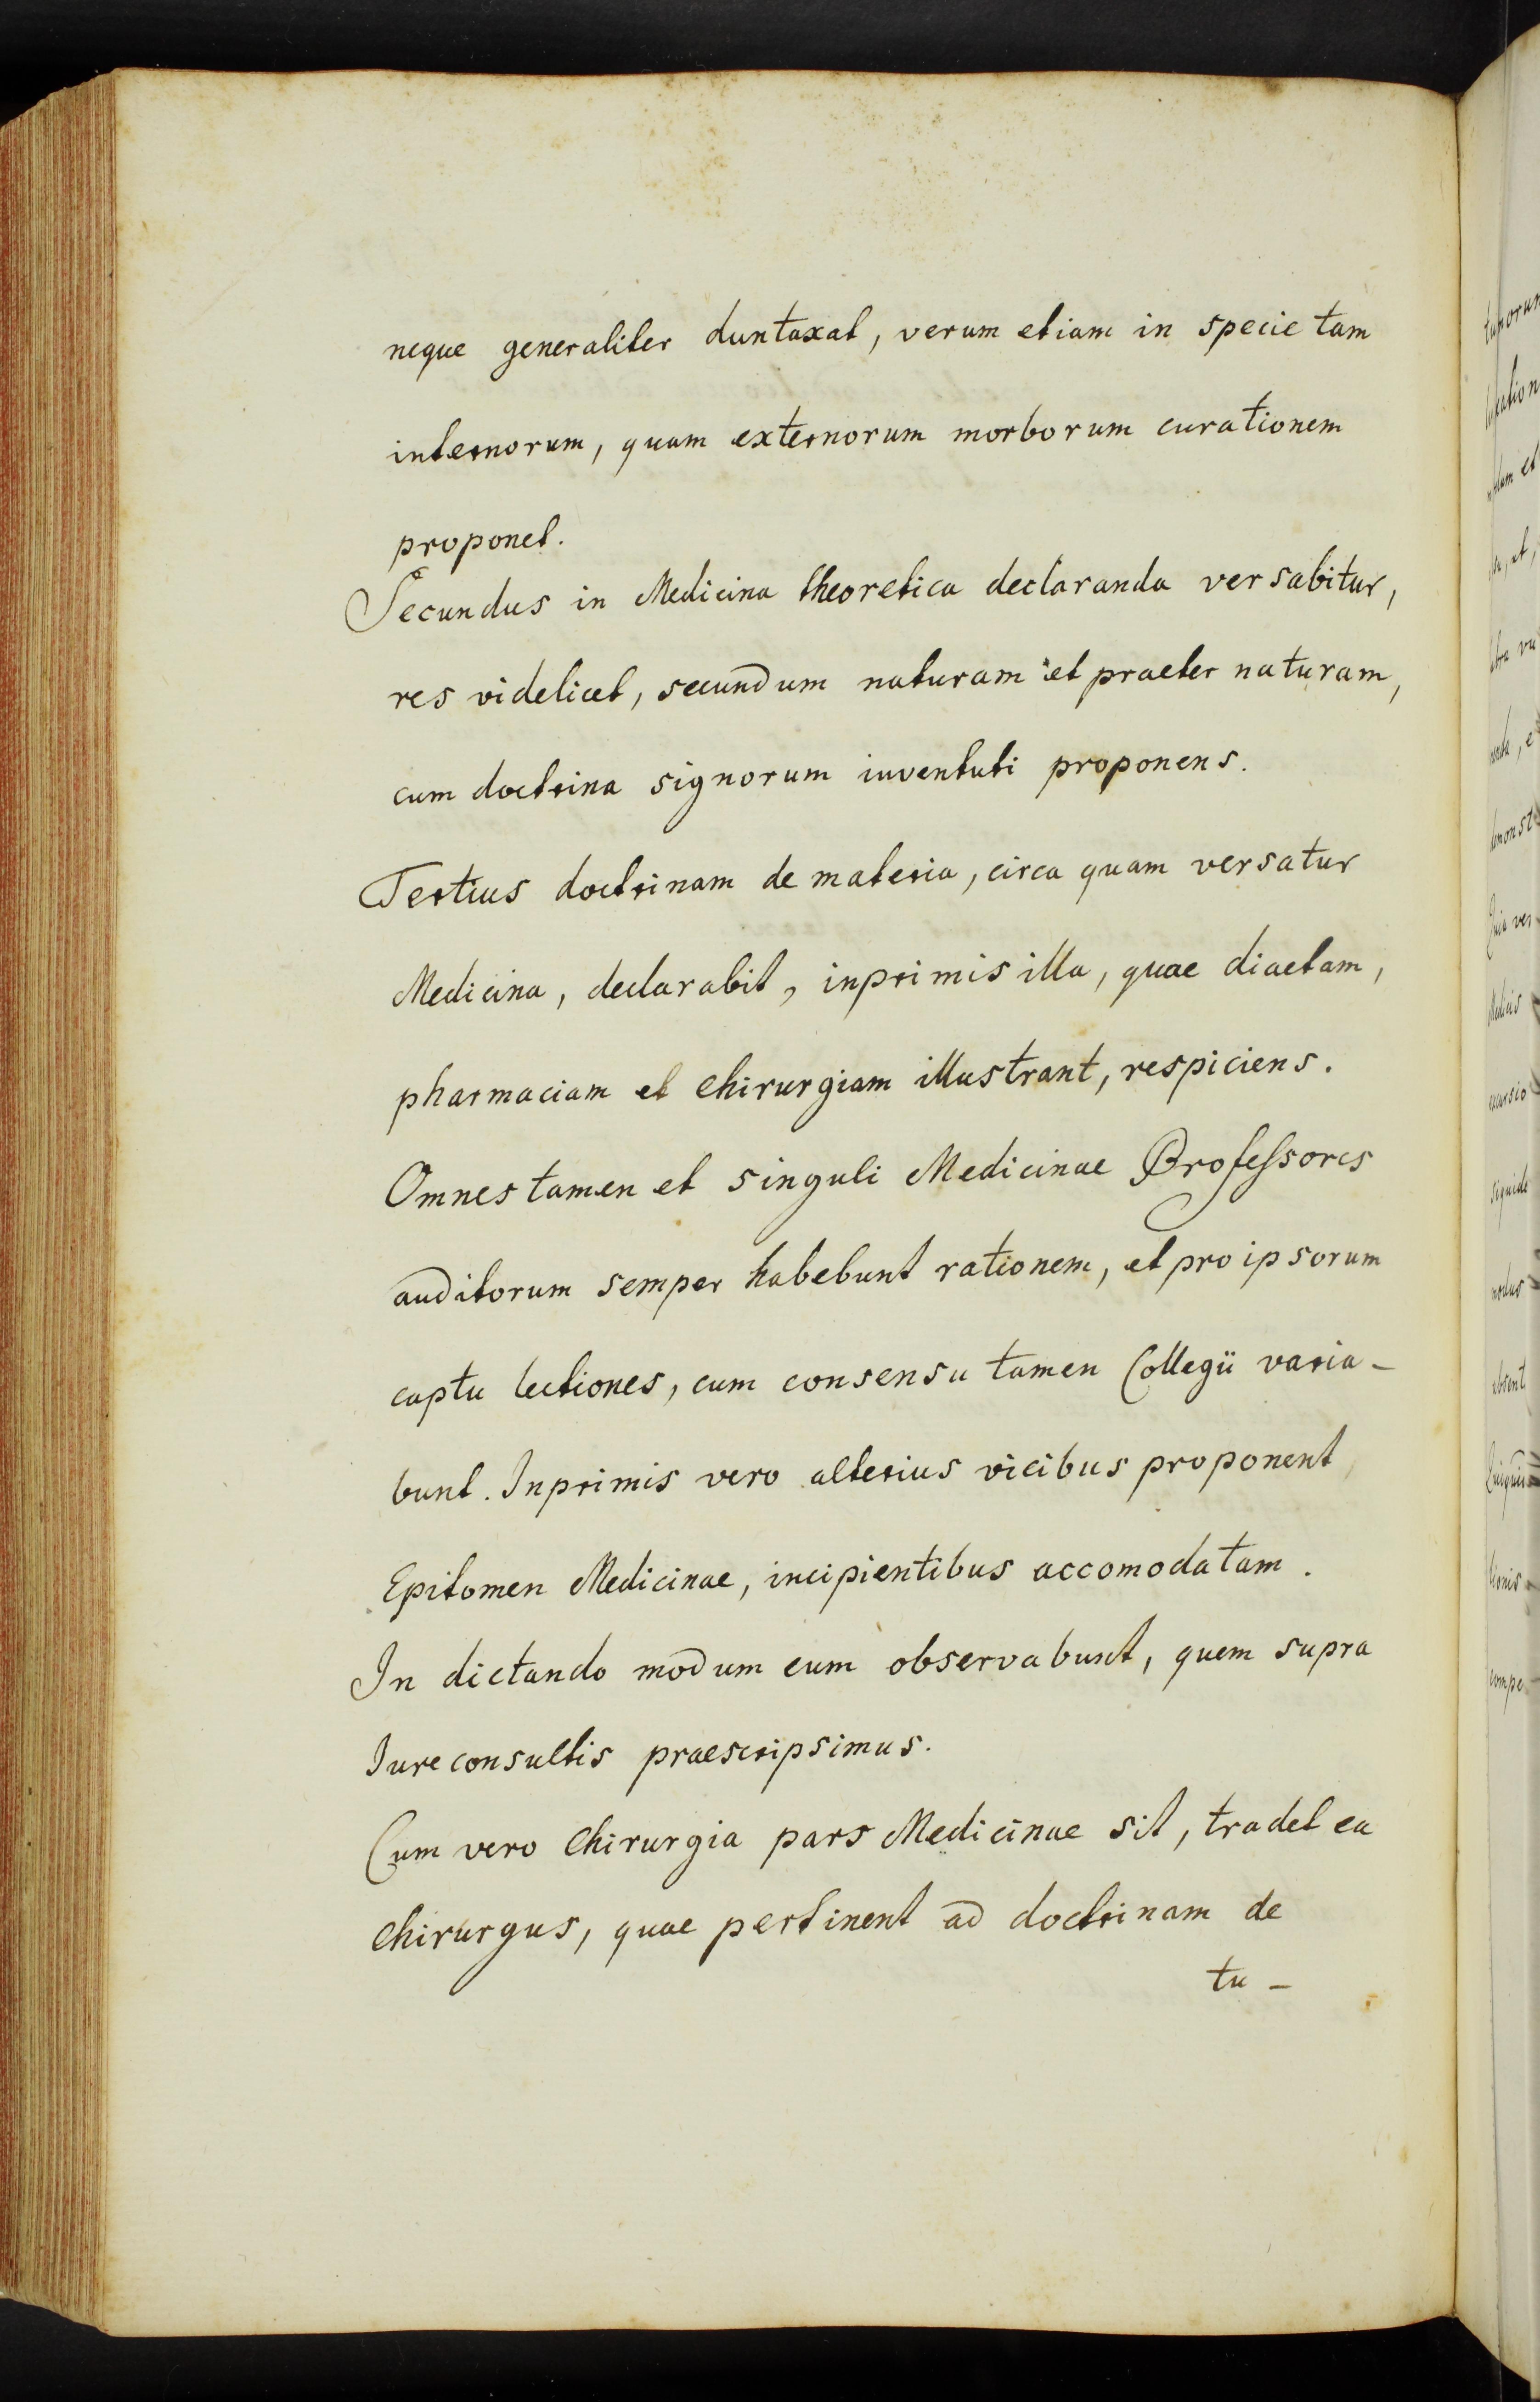 neque generaliter duntaxat, verum etiam in specie tam
internorum, quam externorum morborum curationem
proponet.
Secundus in Medicina theoretica declaranda versabitur,
res videlicet, secundum naturam et praeter naturam,
cum doctrina signorum iuventuti proponens.
Tertius doctrinam de materia, circa quam versatur
Medicina, declarabit, inprimis illa, quae diaetam,
pharmaciam et Chirurgiam illustrant, respiciens.
Omnes tamen et singuli Medicinae Professores
auditorum semper habebunt rationem, et pro ipsorum
captu lectiones, cum consensu tamen Collegii varia-
bunt. Inprimis vero alterius vicibus proponent
Epitomen Medicinae, incipientibus accomodatam.
In dictando modum eum observabunt, quem supra
Iureconsultis praescripsimus.
Cum vero Chirurgia pars Medicinae sit, tradet ea
Chirurgus, quae pertinent ad doctrinam de
tu-